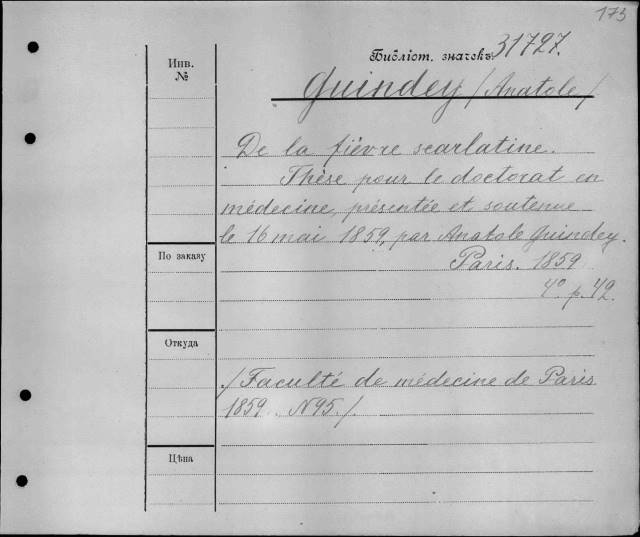 173
Инв.
№
Библіот. значекъ. 31727.
Guindey /Anatole/
De la fièvre scarlatine.
Thèse pour le doctorat en
médecine, présentée et soutenue
le 16 mai 1859, par Anatole Guindey.
По заказу
Paris. 1859
4º p. 42.
Откуда
/Faculté de médecine de Paris
1859. N95./.
Цѣна